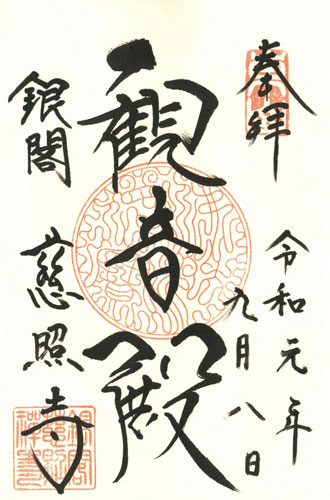 奉拝
令和元年
九月八日
観音殿
銀閣
慈照寺